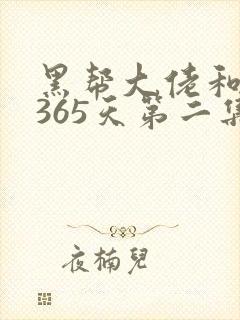 黑帮大佬和
365天第二集
夜楠兒